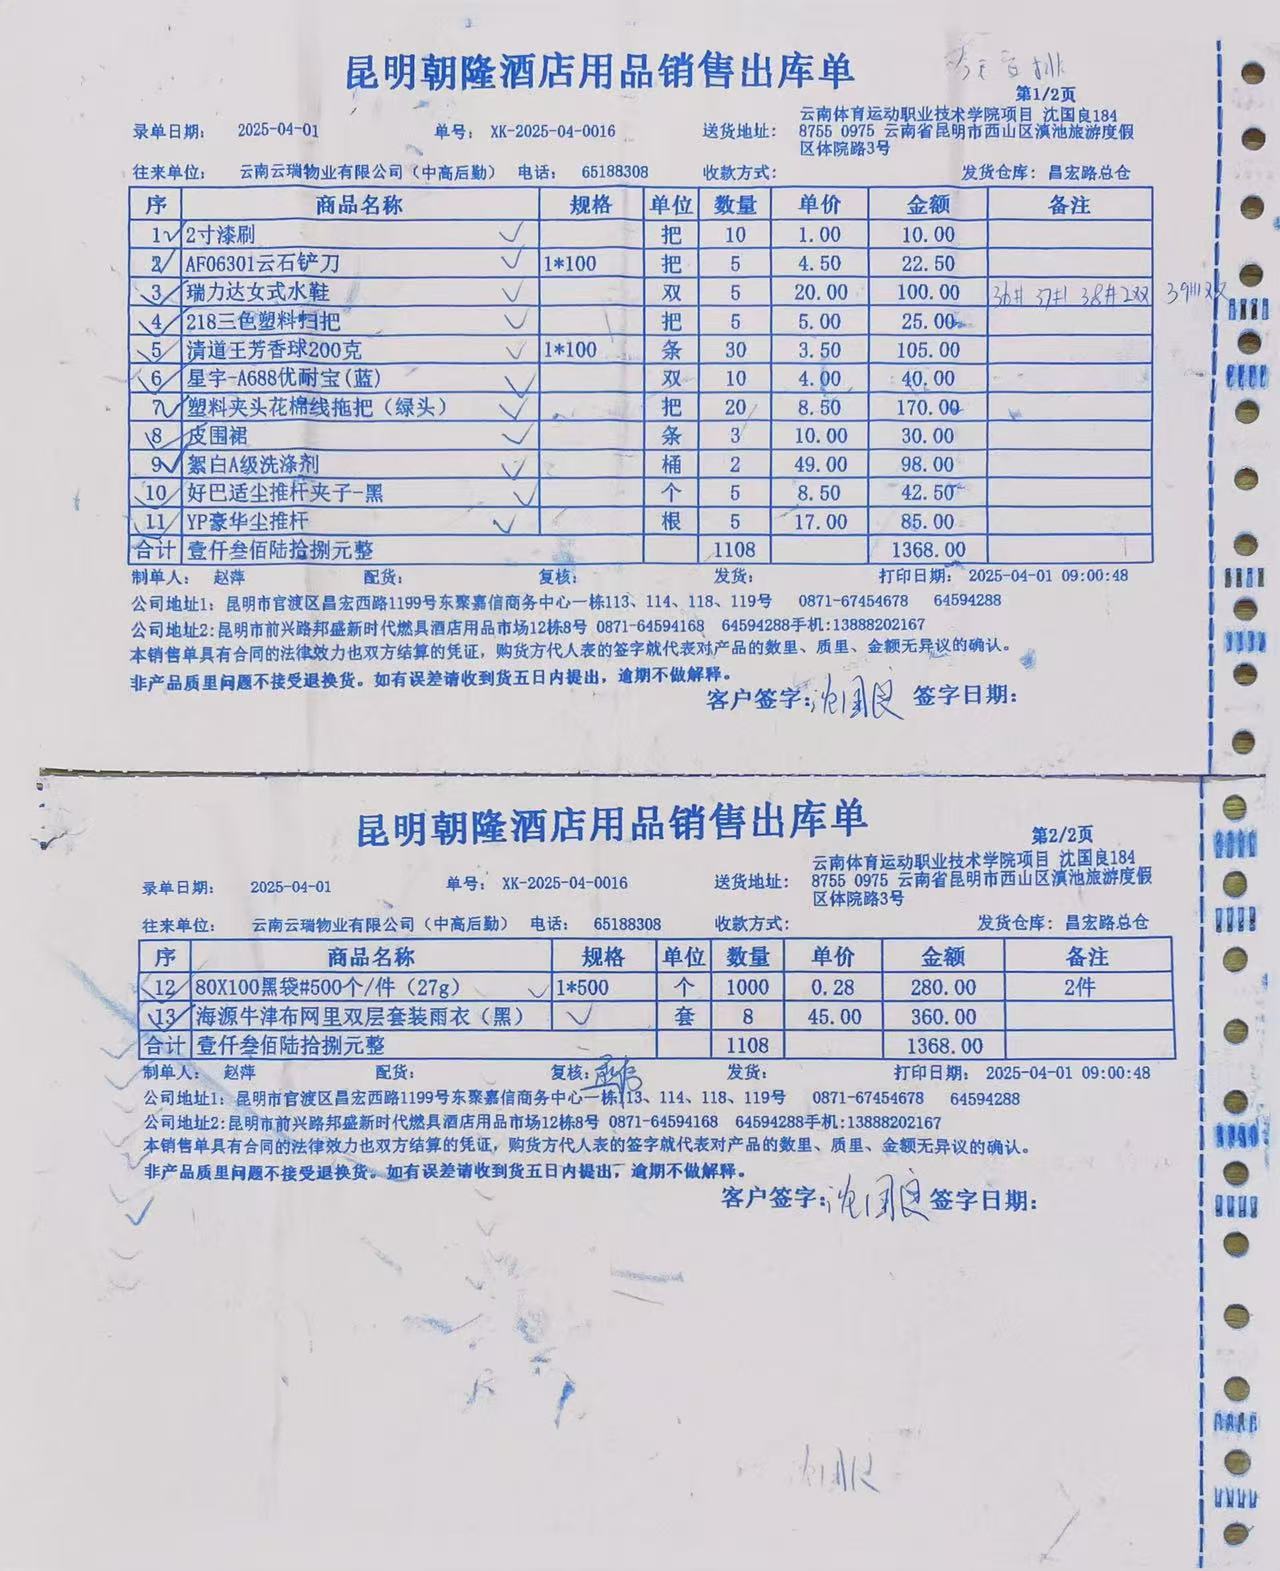 昆明朝隆酒店用品销售出库单
第1/2页
录单日期： 2025-04-01 单号： XK-2025-04-0016 送货地址： 云南体育运动职业技术学院项目 沈国良184
8755 0975 云南省昆明市西山区滇池旅游度假
区体院路3号
往来单位： 云南云瑞物业有限公司（中高后勤） 电话： 65188308 收款方式： 发货仓库：昌宏路总仓
序 商品名称 规格 单位 数量 单价 金额 备注
1 2寸漆刷 把 10 1.00 10.00
2 AF06301云石铲刀 1*100 把 5 4.50 22.50
3 瑞力达女式水鞋 双 5 20.00 100.00 36# 37#1 38#2双
4 218三色塑料扫把 把 5 5.00 25.00
5 清道王芳香球200克 1*100 条 30 3.50 105.00
6 星宇-A688优耐宝(蓝) 双 10 4.00 40.00
7 塑料夹头花棉线拖把（绿头） 把 20 8.50 170.00
8 皮围裙 条 3 10.00 30.00
9 絮白A级洗涤剂 桶 2 49.00 98.00
10 好巴适尘推杆夹子-黑 个 5 8.50 42.50
11 YP豪华尘推杆 根 5 17.00 85.00
合计 壹仟叁佰陆拾捌元整 1108 1368.00
制单人： 赵萍 配货： 复核： 发货： 打印日期： 2025-04-01 09:00:48
公司地址1：昆明市官渡区昌宏西路1199号东聚嘉信商务中心一栋113、114、118、119号 0871-67454678 64594288
公司地址2:昆明市前兴路邦盛新时代燃具酒店用品市场12栋8号 0871-64594168 64594288手机:13888202167
本销售单具有合同的法律效力也双方结算的凭证，购货方代人表的签字就代表对产品的数里、质里、金额无异议的确认。
非产品质里问题不接受退换货。如有误差请收到货五日内提出，逾期不做解释。
客户签字：沈国良 签字日期：
昆明朝隆酒店用品销售出库单
第2/2页
录单日期： 2025-04-01 单号： XK-2025-04-0016 送货地址： 云南体育运动职业技术学院项目 沈国良184
8755 0975 云南省昆明市西山区滇池旅游度假
区体院路3号
往来单位： 云南云瑞物业有限公司（中高后勤） 电话： 65188308 收款方式： 发货仓库：昌宏路总仓
序 商品名称 规格 单位 数量 单价 金额 备注
12 80X100黑袋#500个/件（27g） 1*500 个 1000 0.28 280.00 2件
13 海源牛津布网里双层套装雨衣（黑） 套 8 45.00 360.00
合计 壹仟叁佰陆拾捌元整 1108 1368.00
制单人： 赵萍 配货： 复核： 发货： 打印日期： 2025-04-01 09:00:48
公司地址1：昆明市官渡区昌宏西路1199号东聚嘉信商务中心一栋113、114、118、119号 0871-67454678 64594288
公司地址2:昆明市前兴路邦盛新时代燃具酒店用品市场12栋8号 0871-64594168 64594288手机:13888202167
本销售单具有合同的法律效力也双方结算的凭证，购货方代人表的签字就代表对产品的数里、质里、金额无异议的确认。
非产品质里问题不接受退换货。如有误差请收到货五日内提出，逾期不做解释。
客户签字：沈国良 签字日期：